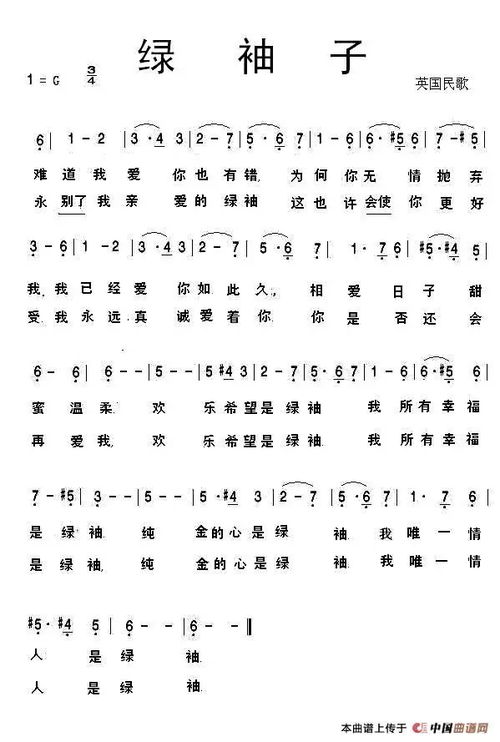 绿 袖 子
1 = G 3/4
英国民歌
6 | 1 - 2 | 3 · 4 3 | 2 - 7 | 5 · 6 7 | 1 - 6 | 6 · #5 6 | 7 - #5 |
难道我爱 你也有错, 为何你无 情抛弃
永别了我亲 爱的绿袖 这也许会使你更好
3 - 6 | 1 - 2 | 3 · 4 3 | 2 - 7 | 5 · 6 7 | 1 · 7 6 | #5 · #4 #5 |
我,我已经爱 你如此久, 相爱日子甜
受,我永远真 诚爱着你, 你是否还会
6 - 6 | 6 - - | 5 - - | 5 #4 3 | 2 - 7 | 5 · 6 7 | 1 - 6 | 6 · #5 6 |
蜜温柔. 欢 乐希望是绿袖 我所有幸福
再爱我, 欢 乐希望是绿袖 我所有幸福
7 - #5 | 3 - - | 5 - - | 5 · #4 3 | 2 - 7 | 5 · 6 7 | 1 · 7 6 |
是绿袖, 纯 金的心是绿 袖.我唯一情
是绿袖, 纯 金的心是绿 袖.我唯一情
#5 · #4 #5 | 6 - - | 6 - - ‖
人是绿袖.
人是绿袖.
本曲谱上传于 中国曲谱网